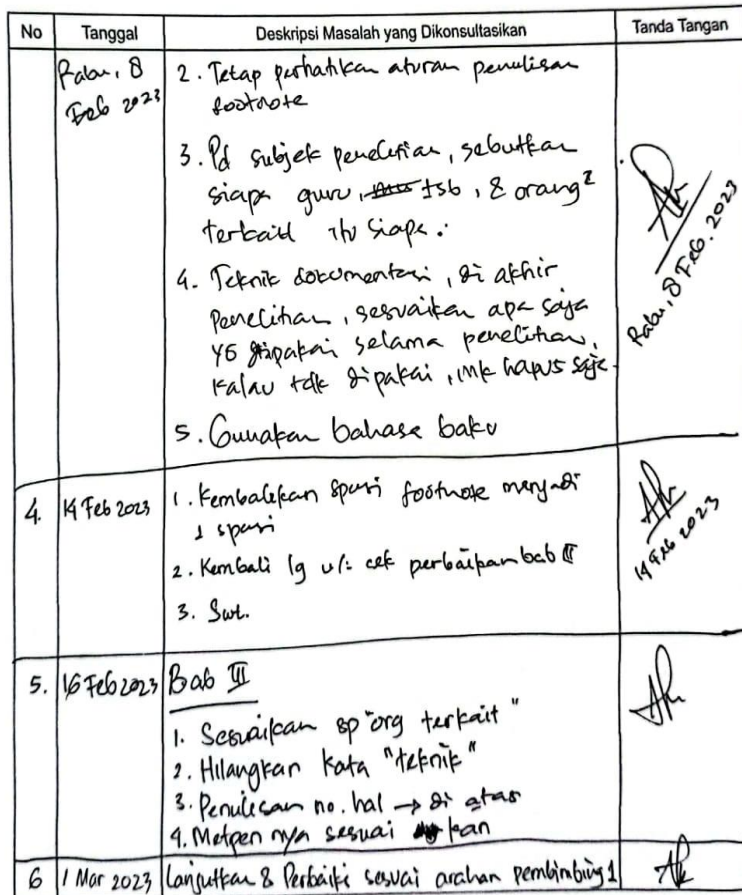 No Tanggal Deskripsi Masalah yang Dikonsultasikan Tanda Tangan
Rabu, 8
Feb 2023
2. Tetap perhatikan aturan penulisan
footnote
3. Pd subjek penelitian, sebutkan
siapa guru, tsb, & orang²
terkait itu siapa.
4. Teknik dokumentasi, di akhir
penelitian, sesuaikan apa saja
yg dipakai selama penelitian,
kalau tdk dipakai, mk hapus saja
5. Gunakan bahasa baku
Rabu, 8 Feb. 2023
4. 14 Feb 2023
1. Kembalikan spasi footnote menjadi
1 spasi
2. Kembali lg u/: cek perbaikan bab III
3. Swt.
14 Feb 2023
5. 16 Feb 2023
Bab III
1. Sesuaikan sp "org terkait"
2. Hilangkan kata "teknik"
3. Penulisan no. hal → di atas
4. Metpen nya sesuai kan
6 1 Mar 2023 Lanjutkan & Perbaiki sesuai arahan pembimbing 1